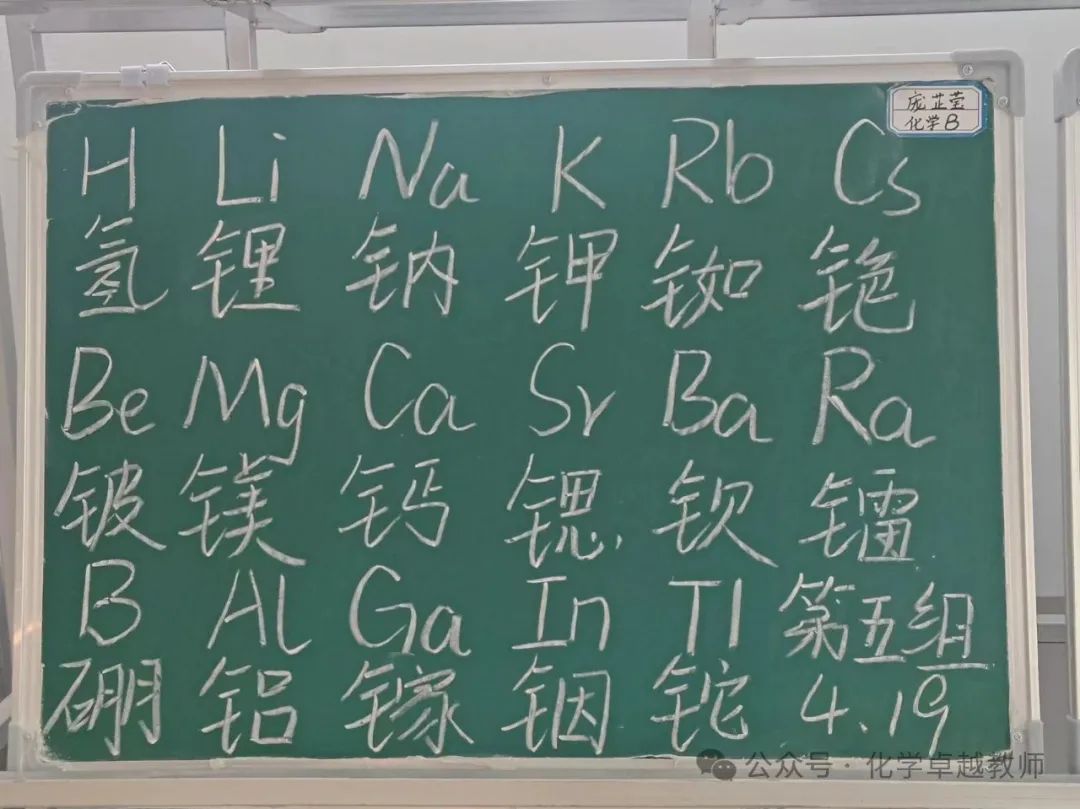 庞芷莹
化学B
H Li Na K Rb Cs
氢 锂 钠 钾 铷 铯
Be Mg Ca Sr Ba Ra
铍 镁 钙 锶 钡 镭
B Al Ga In Tl 第五组
硼 铝 镓 铟 铊 4.19
公众号·化学卓越教师